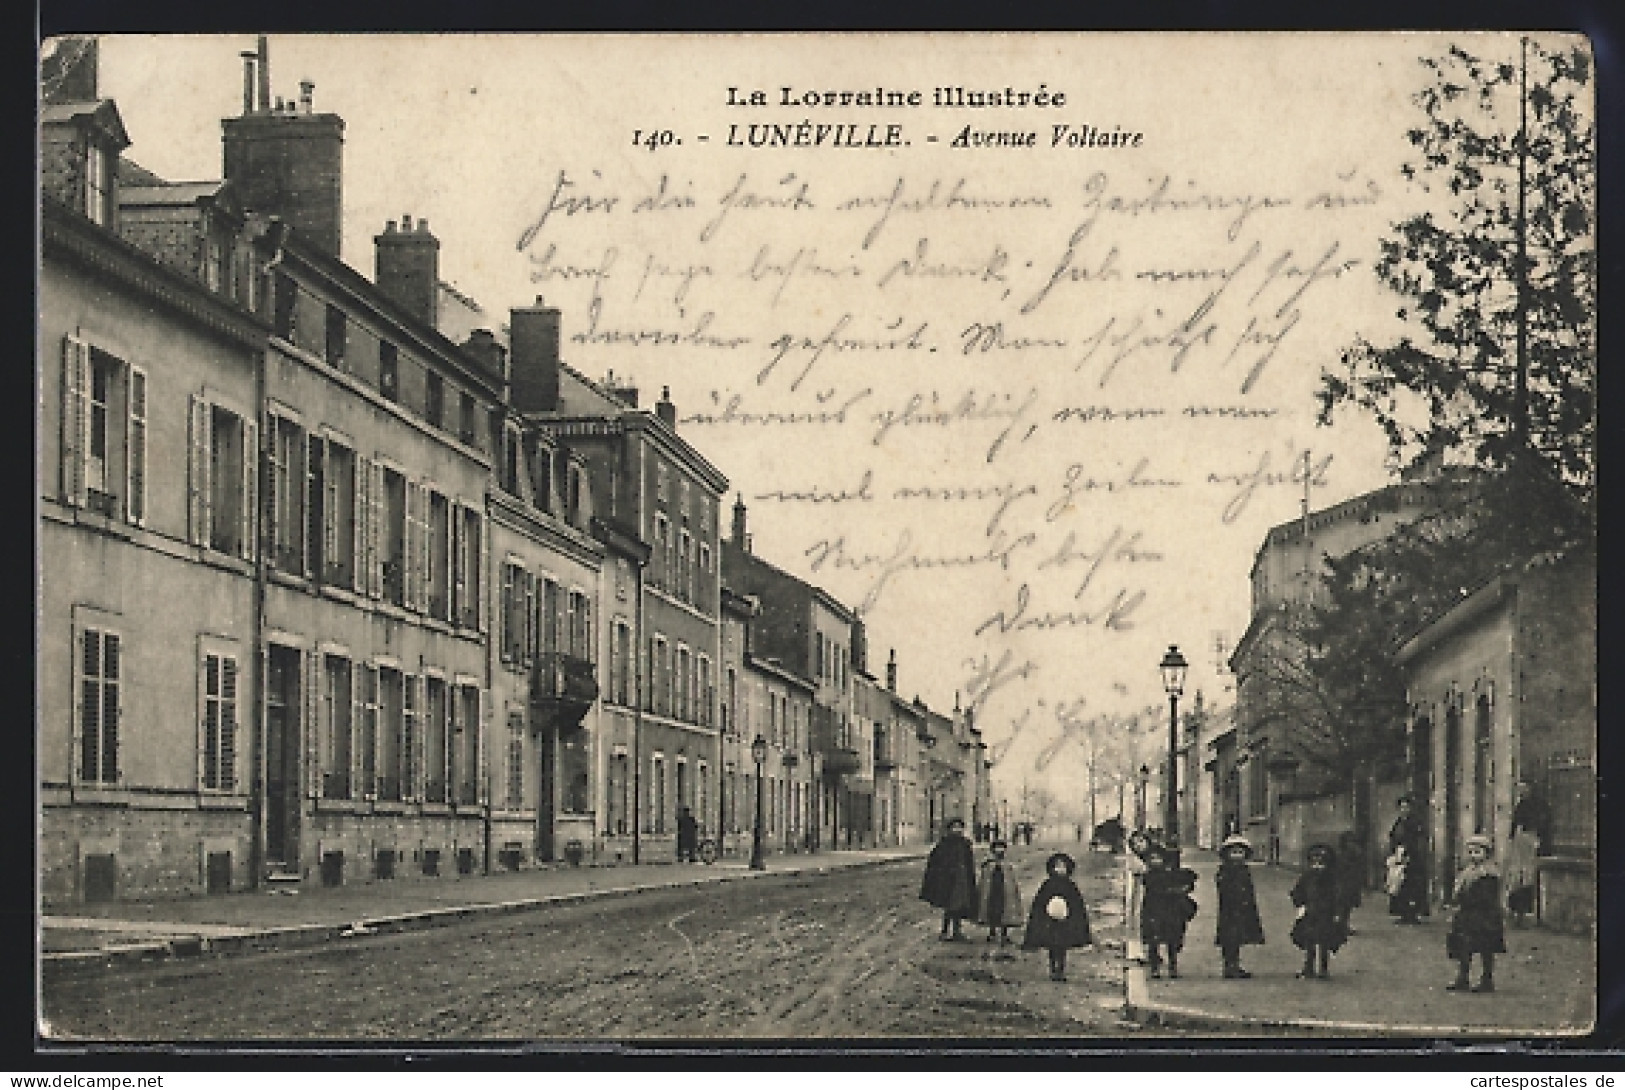 La Lorraine illustrée
140. - LUNÉVILLE. - Avenue Voltaire
Für die heute erhaltenen Zeitungen und
Brief sage besten Dank; hab mich sehr
darüber gefreut. Man schätzt sich
überaus glücklich, wenn man
mal einige Zeilen erhält
Nochmals besten
Dank
Ihr
delcampe.net
cartespostales de